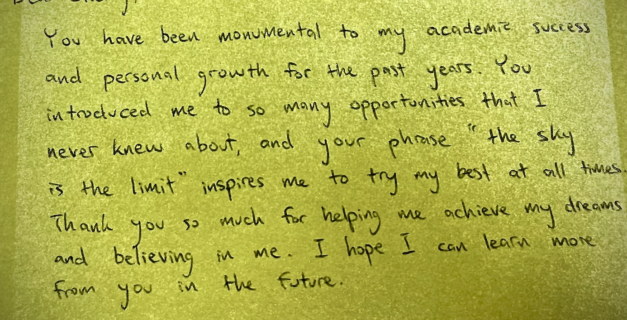 You have been monumental to my academic success
and personal growth for the past years. You
introduced me to so many opportunities that I
never knew about, and your phrase "the sky
is the limit" inspires me to try my best at all times.
Thank you so much for helping me achieve my dreams
and believing in me. I hope I can learn more
from you in the future.